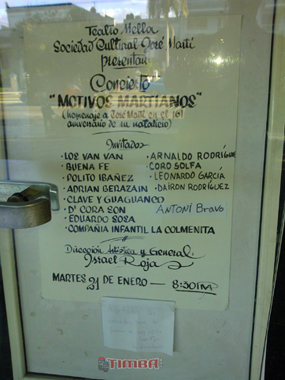 Teatro Mella
Sociedad Cultural José Martí
presentan:
Concierto
"MOTIVOS MARTIANOS"
(homenaje a José Martí en el 161
aniversario de su natalicio)
Invitados
· LOS VAN VAN · ARNALDO RODRÍGUE
· BUENA FE · CORO SOLFA
· POLITO IBAÑEZ · LEONARDO GARCÍA
· ADRIAN BERAZAIN · DAIRON RODRÍGUEZ
· CLAVE Y GUAGUANCO
· D' CORA SON ANTONI Bravo
· EDUARDO SOSA
· COMPAÑIA INFANTIL LA COLMENITA
Dirección Artística y General.
Israel Rojas
MARTES 21 DE ENERO — 8:30 PM
TIMBA